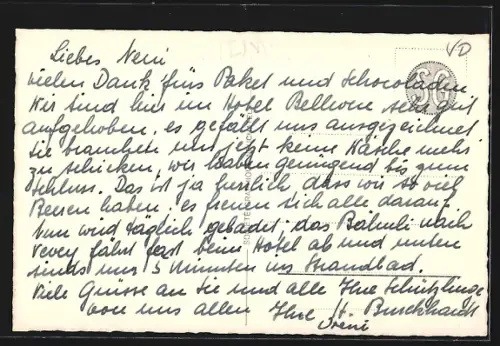 VD
Liebes Neni
vielen Dank fürs Paket und Schocoladen.
Wir sind hier im Hotel Bellevue sehr gut
aufgehoben, es gefällt uns ausgezeichnet
Sie brauchen uns jetzt keine Wäsche mehr
zu schicken, wir haben genügend bis zum
Schluss. Das ist ja herrlich, dass wir so viel
Beeren haben, es freuen sich alle darauf.
Nun wird täglich gebadet, das Bähnli nach
Vevey fährt fast beim Hotel ab und unten
sinds nur 5 Minuten ins Strandbad.
Viele Grüsse an Sie und alle Ihre Schützlinge
von uns allen Ihre H. Burckhardt